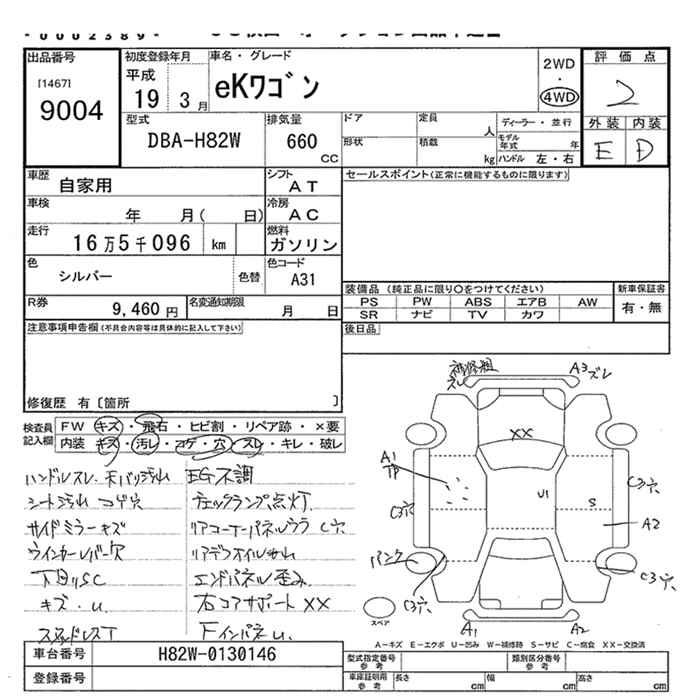 出品番号
[1467]
9004
初度登録年月
平成
19 3 月
車名・グレード
eKワゴン
2WD
・
4WD
評価点
2
外装 内装
E D
型式
DBA-H82W
排気量
660 CC
ドア
定員 人
ディーラー・並行
形状
積載 kg
モデル年式 年
ハンドル 左・右
車歴
自家用
シフト
AT
セールスポイント(正常に機能するものに限ります)
車検
年 月( 日)
冷房
AC
走行
16万5千096 km
燃料
ガソリン
色
シルバー
色替
色コード
A31
装備品 (純正品に限り○をつけてください)
新車保証書
PS PW ABS エアB AW
SR ナビ TV カワ
有・無
R券
9,460 円
名変通知期限
月 日
後日品
注意事項申告欄(不具合内容等は具体的に記入して下さい)
修復歴 有〔箇所 〕
検査員記入欄
FW キズ・飛石・ヒビ割・リペア跡・×要
内装 キズ・汚レ・コゲ・穴・スレ・キレ・破レ
ハンドルスレ
EG不調
シート汚れ コゲ穴
チェックランプ点灯
サイドミラーキズ
リアコーナーパネルウラ C穴
ウインカーレバー穴
下回りSC
エンドパネル歪み
キズ・U
右コアサポートXX
スタッドレスT
A3ズレ
XX
A1
U1
S
C3穴
C3穴
A2
パンク
C3穴
C3穴
スペア
A1
A2
A-キズ E-エクボ U-凹み W-補修跡 S-サビ C-腐食 XX-交換済
車台番号
H82W-0130146
型式指定番号
参考
類別区分番号
参考
登録番号
車庫証明用
参考
長さ cm
幅 cm
高さ cm